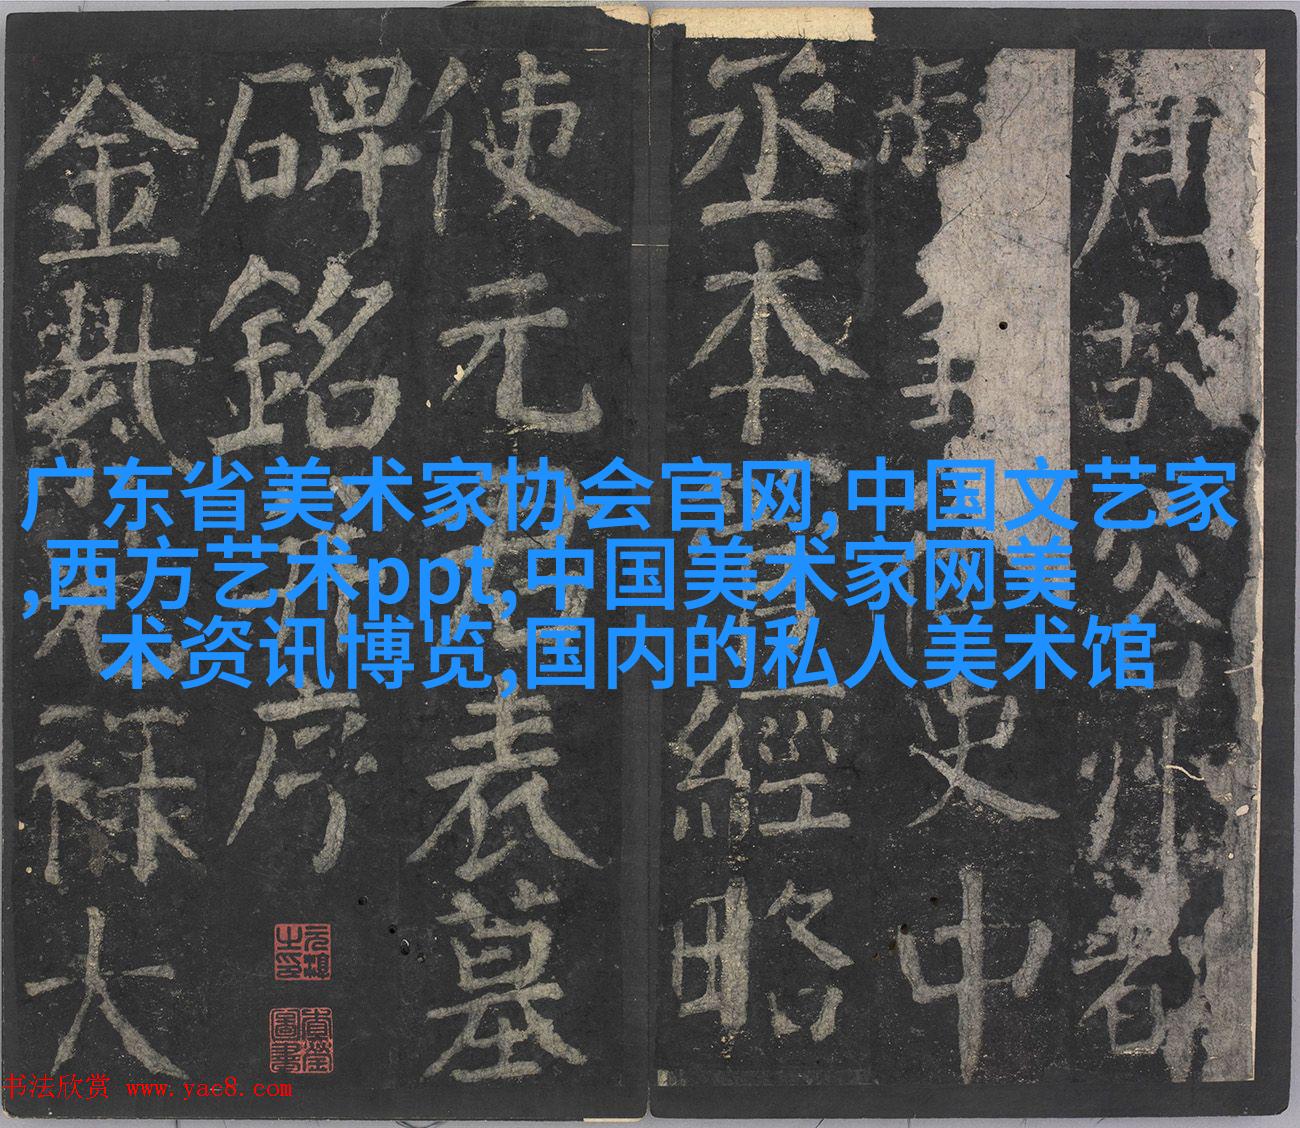 故容州都
史中
丞本經略
使元表墓
碑銘序
金紫祿大
广东省美术家协会官网,中国文艺家
,西方艺术ppt,中国美术家网美
术资讯博览,国内的私人美术馆
书法欣赏 www.yac8.com